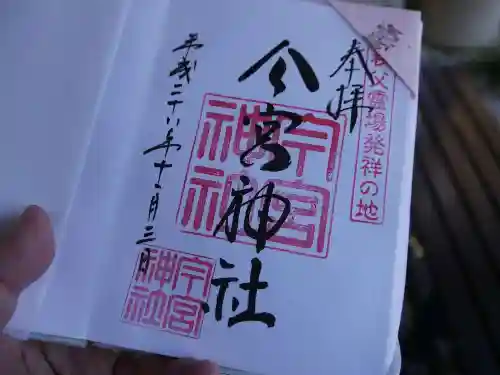 秩父霊場発祥の地
奉拝
今宮神社
今宮神社
今宮神社
平成二十八年十一月三日